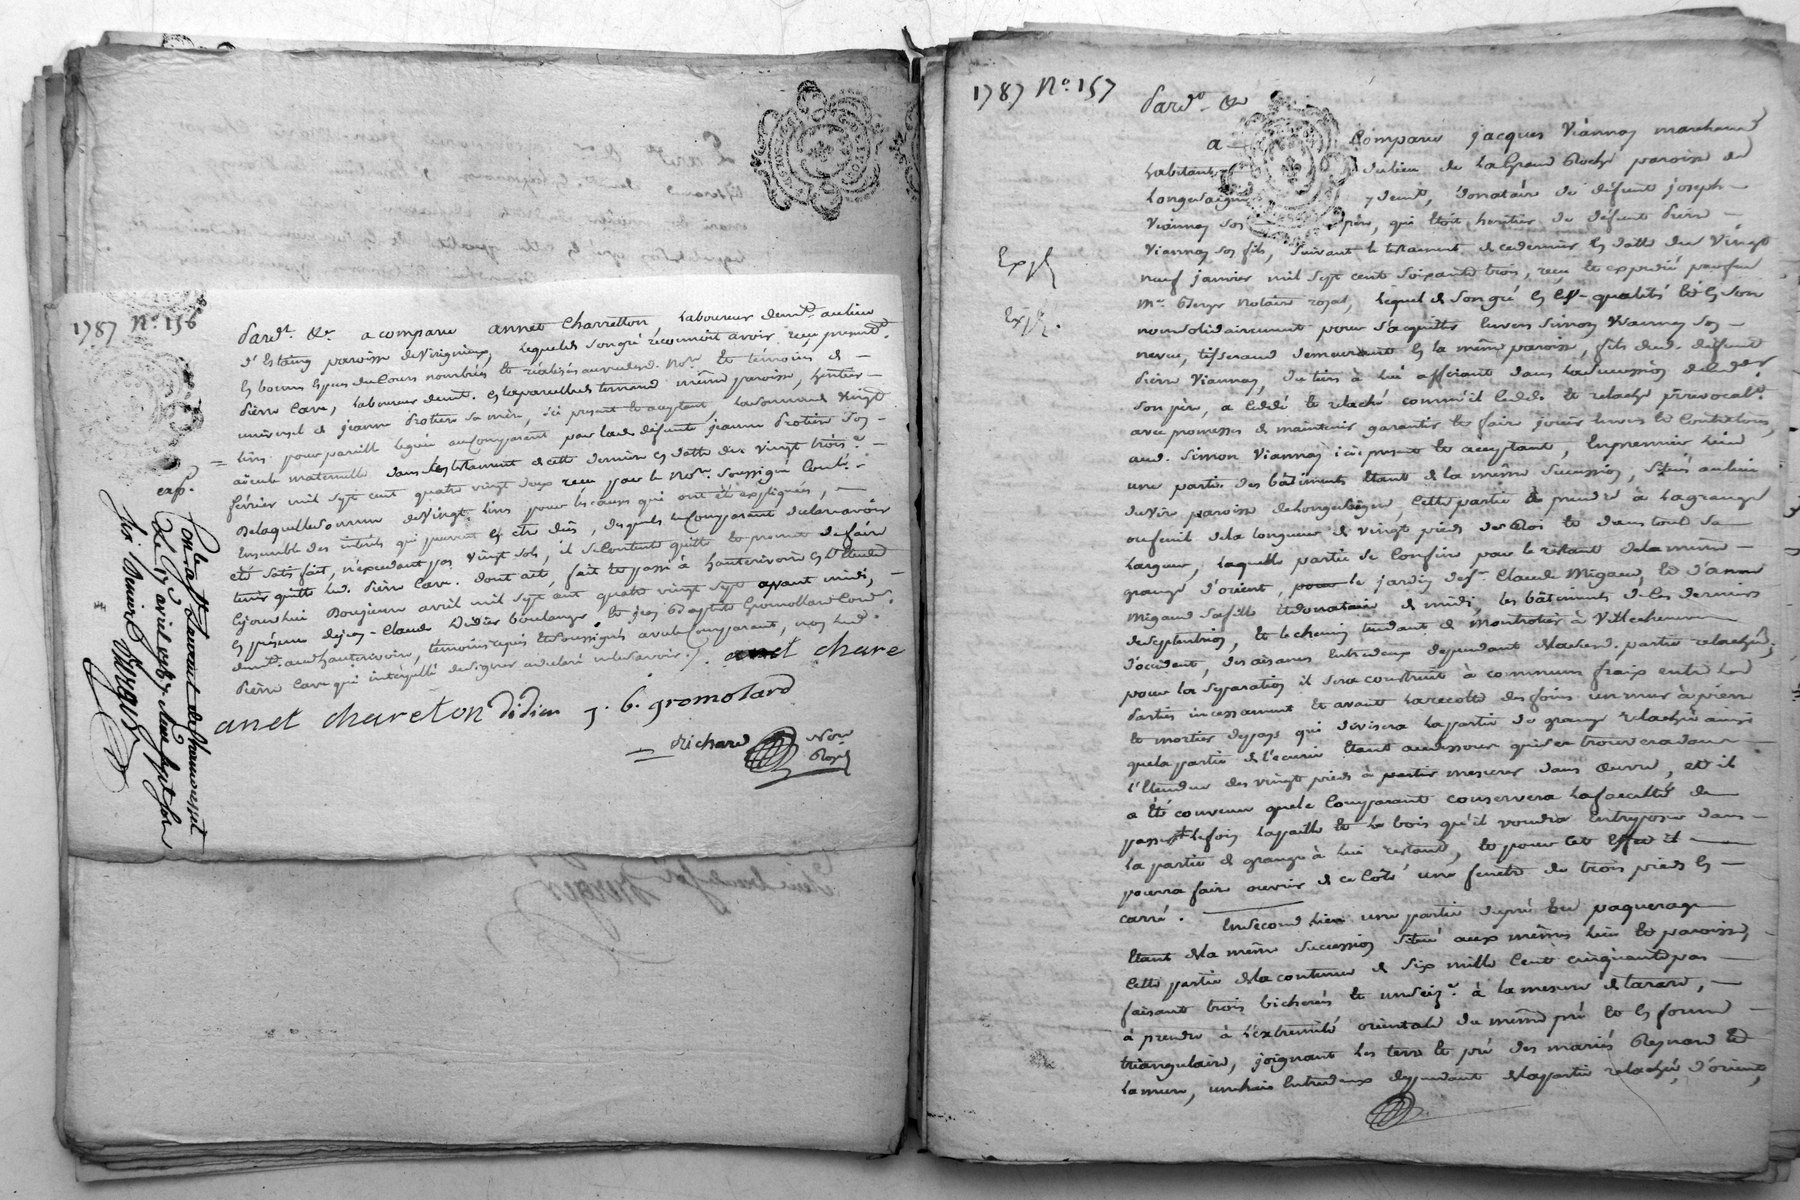 1787 N.o 156
Pardt &r. a comparu annet Charretton, laboureur demt. au lieu
d'Estaing paroisse de Virignieux, lequel de son gré reconnoit avoir reçu présent.t
en bonnes espèces du cours nombrées et réalisées au vu des d. Nore. et témoins de
Pierre Cave, laboureur demt. en la parcelle du ternand même paroisse, héritier
universel de jeanne Protier sa mère, ici présent et acceptant, la somme de vingt
livres pour pareille léguée au Comparant par lad. défunte jeanne Protier son
aieule maternelle dans le testament de cette dernière en datte du vingt trois.e
février mil sept cent quatre vingt deux reçu par le Nore. soussigné Contlé.
De laquelle somme de vingt livres pour les causes qui ont été expliquées,
Ensemble des intérêts qui peuvent en être dûs, desquels le Comparant déclare avoir
été satisfait, n'excedant pas vingt sols, il se contente quitte et promet de faire
tenir quitte led. Pierre Cave. dont acte, fait et passé à hauterivoire en l'Etude
Ce jourd'hui Douzieme avril mil sept cent quatre vingt sept avant midi,
En présence de jean-Claude Didier boulanger et jean Baptiste Gromollard Cord.r
demts. aud. hauterivoire, témoins requis et soussignés avec le Comparant, non led.
Pierre Cave qui interpellé de signer a déclaré ne le savoir ./. anet chare
anet chareton didier j. b. gromolard
Richard Nore
Royal
exp.
Con.lé a St Laurent de Chamousset
Le 17 avril 1787. Reçu sept sols
six deniers Burgis
1787 N.o 157
Pard.t &r
a Comparu jacques Viannay marchand
habitant du lieu de La Grand Roche paroisse de
Longessaigne y demt., donataire de défunt joseph
Viannay son père, qui étoit héritier de défunt Pierre
Exp.é
Viannay son fils, suivant le testament de ce dernier en datte du vingt
neuf janvier mil sept cent soixante trois, reçu et expédié par feu
Exp.é.
M.e Berger notaire royal, lequel de son gré en cett-qualité et en son
nom solidairement pour s'acquitter envers Simon Viannay son
neveu, tisserand demeurant en la même paroisse, fils dud. défunt
Pierre Viannay, du tiers à lui afférant dans la succession de sond.
son père, a cédé et relaché comme il cède et relache irrévocabl.t
avec promesses de maintenir garantir et faire jouir envers et contre tous,
aud. Simon Viannay ici présent et acceptant, En premier lieu
une partie des bâtiments étant de la même succession, situés au lieu
du Vire paroisse de Longessaigne, cette partie à prendre à la grange
ou fenil de la longueur de vingt pieds de Roi et dans tout sa
largeur, laquelle partie se confine par le restant de la même
grange d'orient, par le jardin de s.r Claude Migaud, et d'anne
Migaud sa fille et donataire de midi, les bâtiments de ces derniers
de septentrion, et le chemin tendant de Montrotier à Villechenève
d'occident, des aisances entredeux dépendant de lad. partie relachée;
pour la séparation il sera construit à communs fraix entre les
Parties incessament et avant la récolte des foins un mur à pierre
et mortier depays qui divisera la partie de grange relachée ainsi
que la partie de l'écurie étant au dessous qui se trouvera dans
l'étendue des vingt pieds à partir mesurer dans œuvre, et il
a été convenu que le Comparant conservera la faculté de
passer le foin la paille et le bois qu'il voudra entreposer dans
la partie de grange à lui restant, et pour cet effet il
pourra faire ouvrir de ce côté une fenêtre de trois pieds en
carré. En second lieu une partie de pré et paquerage
étant de la même succession situé aux mêmes lieu et paroisse,
cette partie de la contenue de six mille cent cinquante pas
faisant trois bicherées et un seiz.e à la mesure de tarare,
à prendre à l'extremité orientale du même pré et en forme
triangulaire, joignant les terre et pré des mariés Reynard et
Lamure, une haie entredeux dépendant de la partie relachée, d'orient,